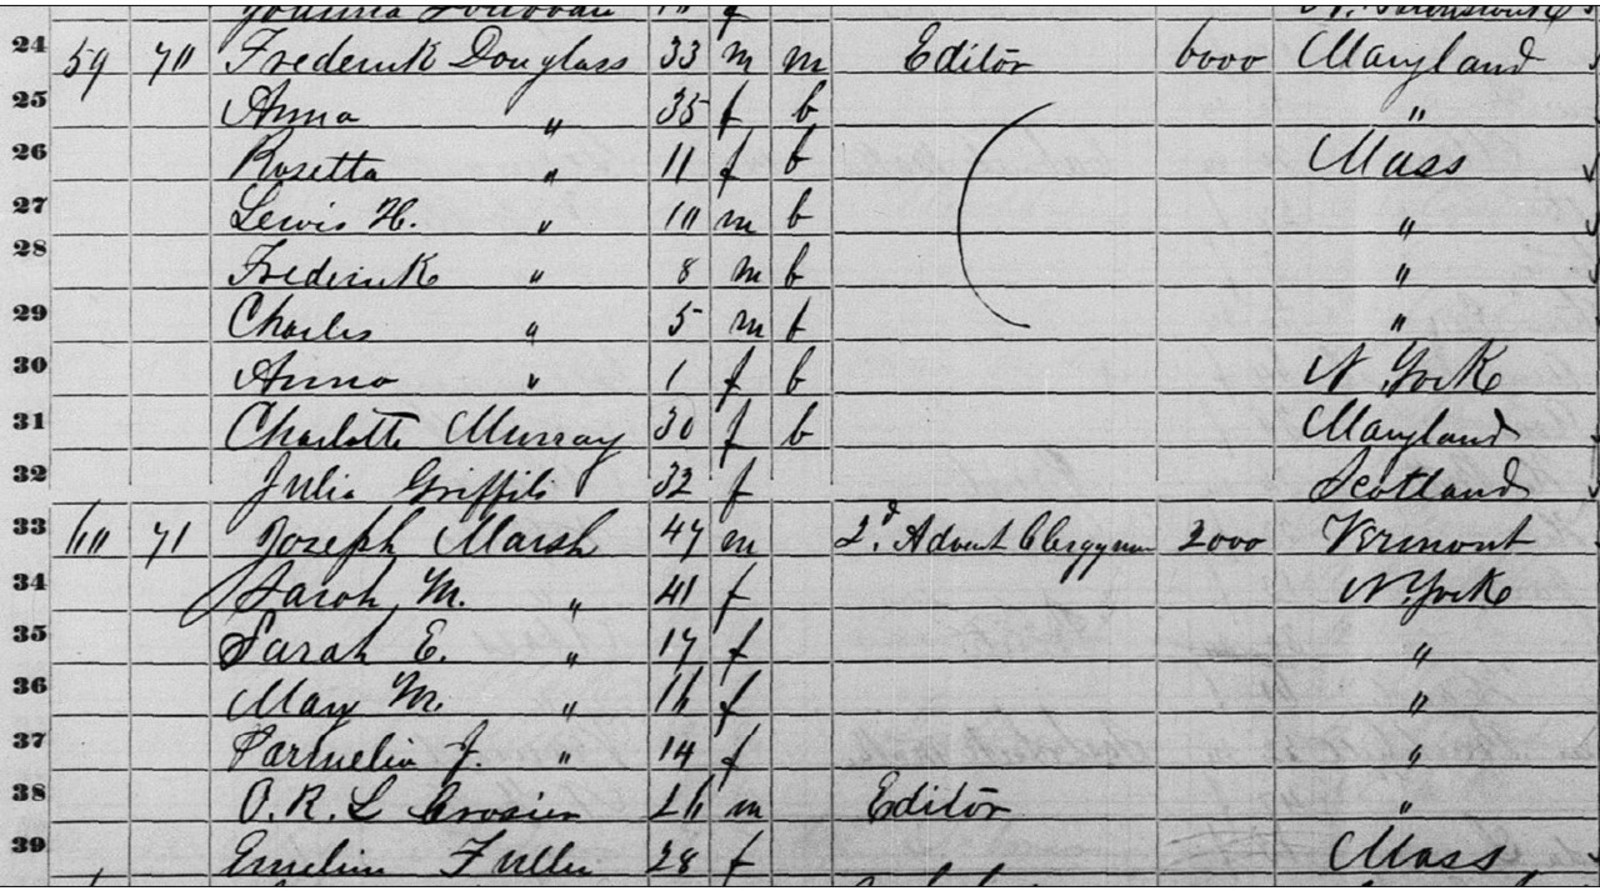 24 59 70 Frederick Douglass 33 m m Editor 6000 Maryland
25 Anna " 35 f b "
26 Rosetta " 11 f b Mass
27 Lewis H. " 10 m b "
28 Frederick " 8 m b "
29 Charles " 5 m b "
30 Anna " 1 f b N. York
31 Charlotte Murray 30 f b Maryland
32 Julia Griffits 32 f Scotland
33 60 71 Joseph Marsh 47 m 2d. Advent Clergyman 2000 Vermont
34 Sarah M. " 41 f N. York
35 Sarah E. " 17 f "
36 Mary M. " 16 f "
37 Parmelia J. " 14 f "
38 O. R. L Crosier m Editor "
39 Fuller 28 f Mass